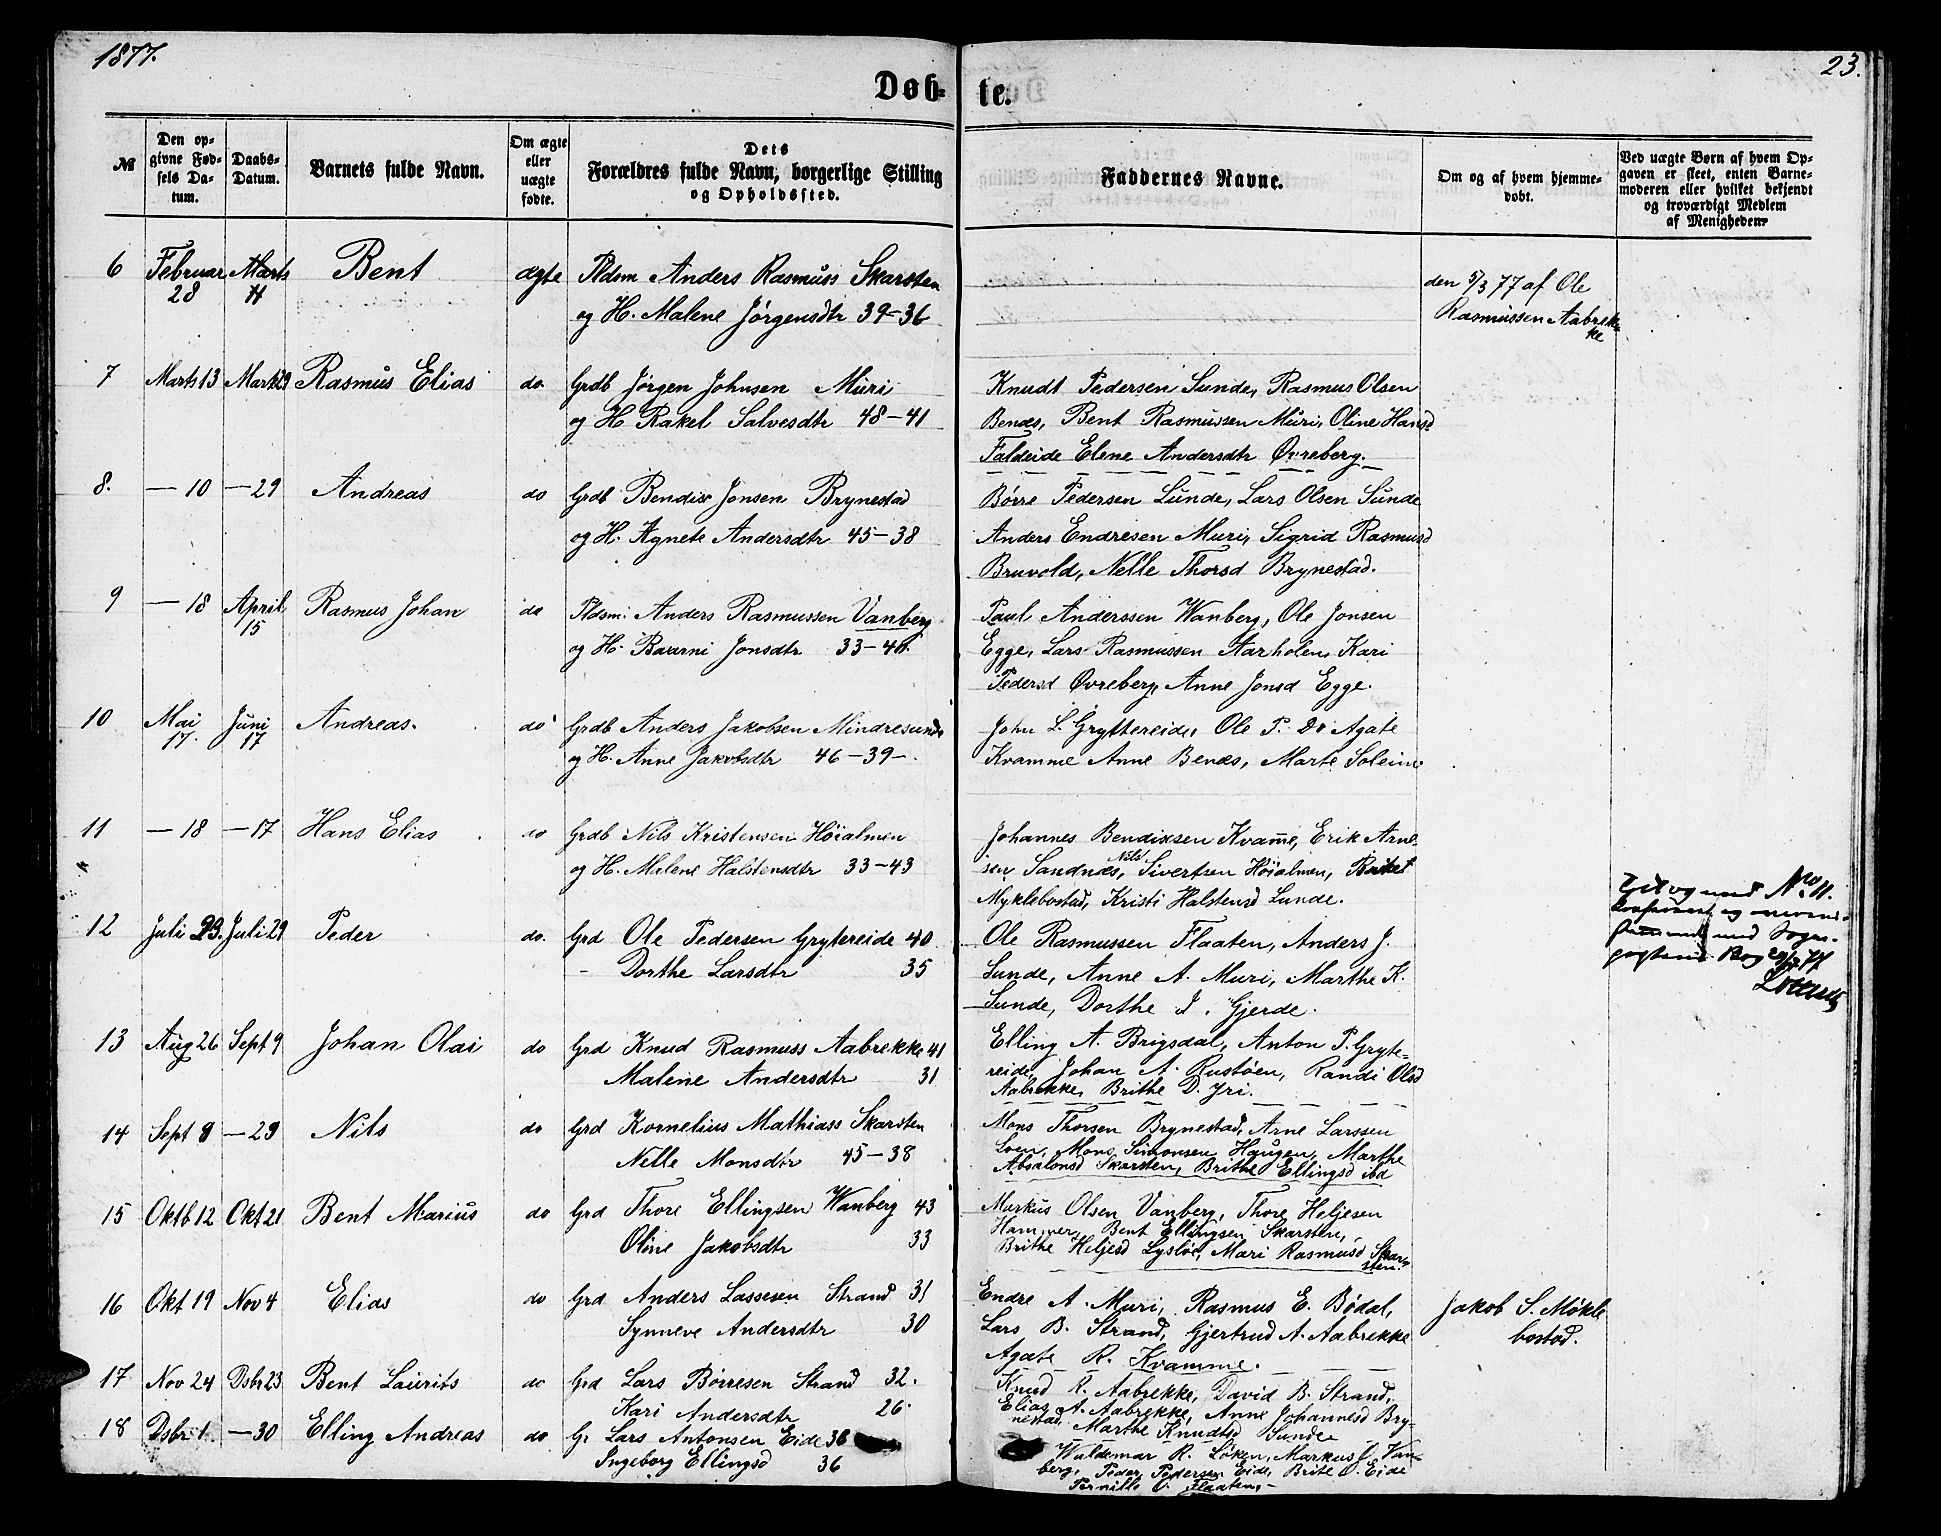 1877.
23.
Døb-
te.
№
Den op-
givne Fød-
sels Da-
tum.
Daabs-
Datum.
Barnets fulde Navn.
Om ægte
eller
uægte
fødte.
Dets
Forældres fulde Navn, borgerlige Stilling
og Opholdssted.
Faddernes Navne.
Om og af hvem hjemme-
døbt.
Ved uægte Børn af hvem Op-
gaven er skeet, enten Barne-
moderen eller hvilket bekjendt
og troværdigt Medlem
af Menigheden.
6 Februar Marts Bent ægte Pldsm Anders Rasmuss Skarsten
28
og H. Malene Jörgensdtr 39-36
den 5/3 77 af Ole
Rasmussen Aabrek-
ke
7 Marts 13 Marts 29 Rasmus Elias do Grdb Jörgen Johnsen Muri Knudt Pedersen Sunde, Rasmus Olsen
og H Rakel Salvesdtr 48-41 Benæs, Bent Rasmussen Muri, Oline Hansd
Faldeide Elene Andersdtr Øvreberg.
8. — 10 — 29 Andreas do Grdb Bendix Jonsen Brynestad Börre Pedersen Sunde, Lars Olsen Sunde
og H. Agnete Andersdtr 45-38 Anders Endresen Muri, Sigrid Rasmusd
Bruvold, Nelle Thorsd Brynestad.
9 — 18 April Rasmus Johan do Pldsm. Anders Rasmussen Vanberg Paul Anderssen Wanberg, Ole Jonsen
15
og H. Baarni Jonsdtr 33- Egge, Lars Rasmussen Aarholen, Kari
Pedersd Øvreberg, Anne Jonsd Egge.
10 Mai Juni Andreas. do Grdb Anders Jakobsen Mindresunde John L. Gryttereide, Ole P. Do Agate
17. 17
og H. Anne Jakobsdtr 46-39-. Kvamme Anne Benæs, Marte Soleim
11 — 18 — 17 Hans Elias do Grdb Nils Kristensen Höialmen Johannes Bendixsen Kvam̅e, Erik Arne-
og H. Malene Halstensdtr 33-43 sen Sandnæs, Nils Sivertsen Höialmen, Rakel
Myklebostad, Kristi Halstensd Sunde.
Til og med No 11.
og
med Sogne-
Bog 77
12 Juli 23. Juli 29 Peder do. Grd Ole Pedersen Grytereide 40 Ole Rasmussen Flaaten, Anders J.
- Dorthe Larsdtr 35 Sunde, Anne A. Muri, Marthe K.
Sunde, Dorthe J. Gjerde.
13 Aug 26 Sept 9 Johan Olai do Grd Knud Rasmuss Aabrekke 41 Elling A. Brigsdal, Anton P. Gryte-
Malene Andersdtr 31 reide, Johan A. Rustöen, Randi Olsd
Aabrekke, Brithe D. Yri.
14 Sept 9 — 29 Nils do Grd Kornelius Mathiass Skarsten Mons Thorsen Brynestad, Arne Larssen
Nelle Monsdtr 45-38 Loen, Mons Simonsen Haugen, Marthe
Absalonsd Skarsten, Brithe Ellingsd ibd
15 Oktb 12 Okt 21 Bent Marius do Grd Thore Ellingsen Wanberg 43 Markus Olsen Vanberg, Thore Heljesen
Oline Jakobsdtr 33 Hammer, Bent Ellingsen Skarsten,
Brithe Heljesd Lyslöe, Mari Rasmusd Skar-
sten.
16 Okt 19 Nov 4 Elias do Grd Anders Lassesen Strand 31 Endre A. Muri, Rasmus E. Bödal, Jakob S. Mökle
Synneve Andersdtr 30 Lars B. Strand, Gjertrud A. Aabrekke bostad.
Agate R. Kvamme.
17 Nov 24 Dsbr 23 Bent Laurits do Grd Lars Börresen Strand 32. Knud R. Aabrekke, David B. Strand,
Kari Andersdtr 26. Elias A. Aabrekke, Anne Johannesd Bry-
nestad. Marthe Knudtsd Sunde
18 Dsbr 1. — 30 Elling Andreas do Gr Lars Antonsen Eide 36
Ingeborg Ellingsd 36 Waldemar R. Löken, Markus O. Van-
berg, Peder Pedersen Eide, Brite O. Eide
Pernille O. Flaaten,-